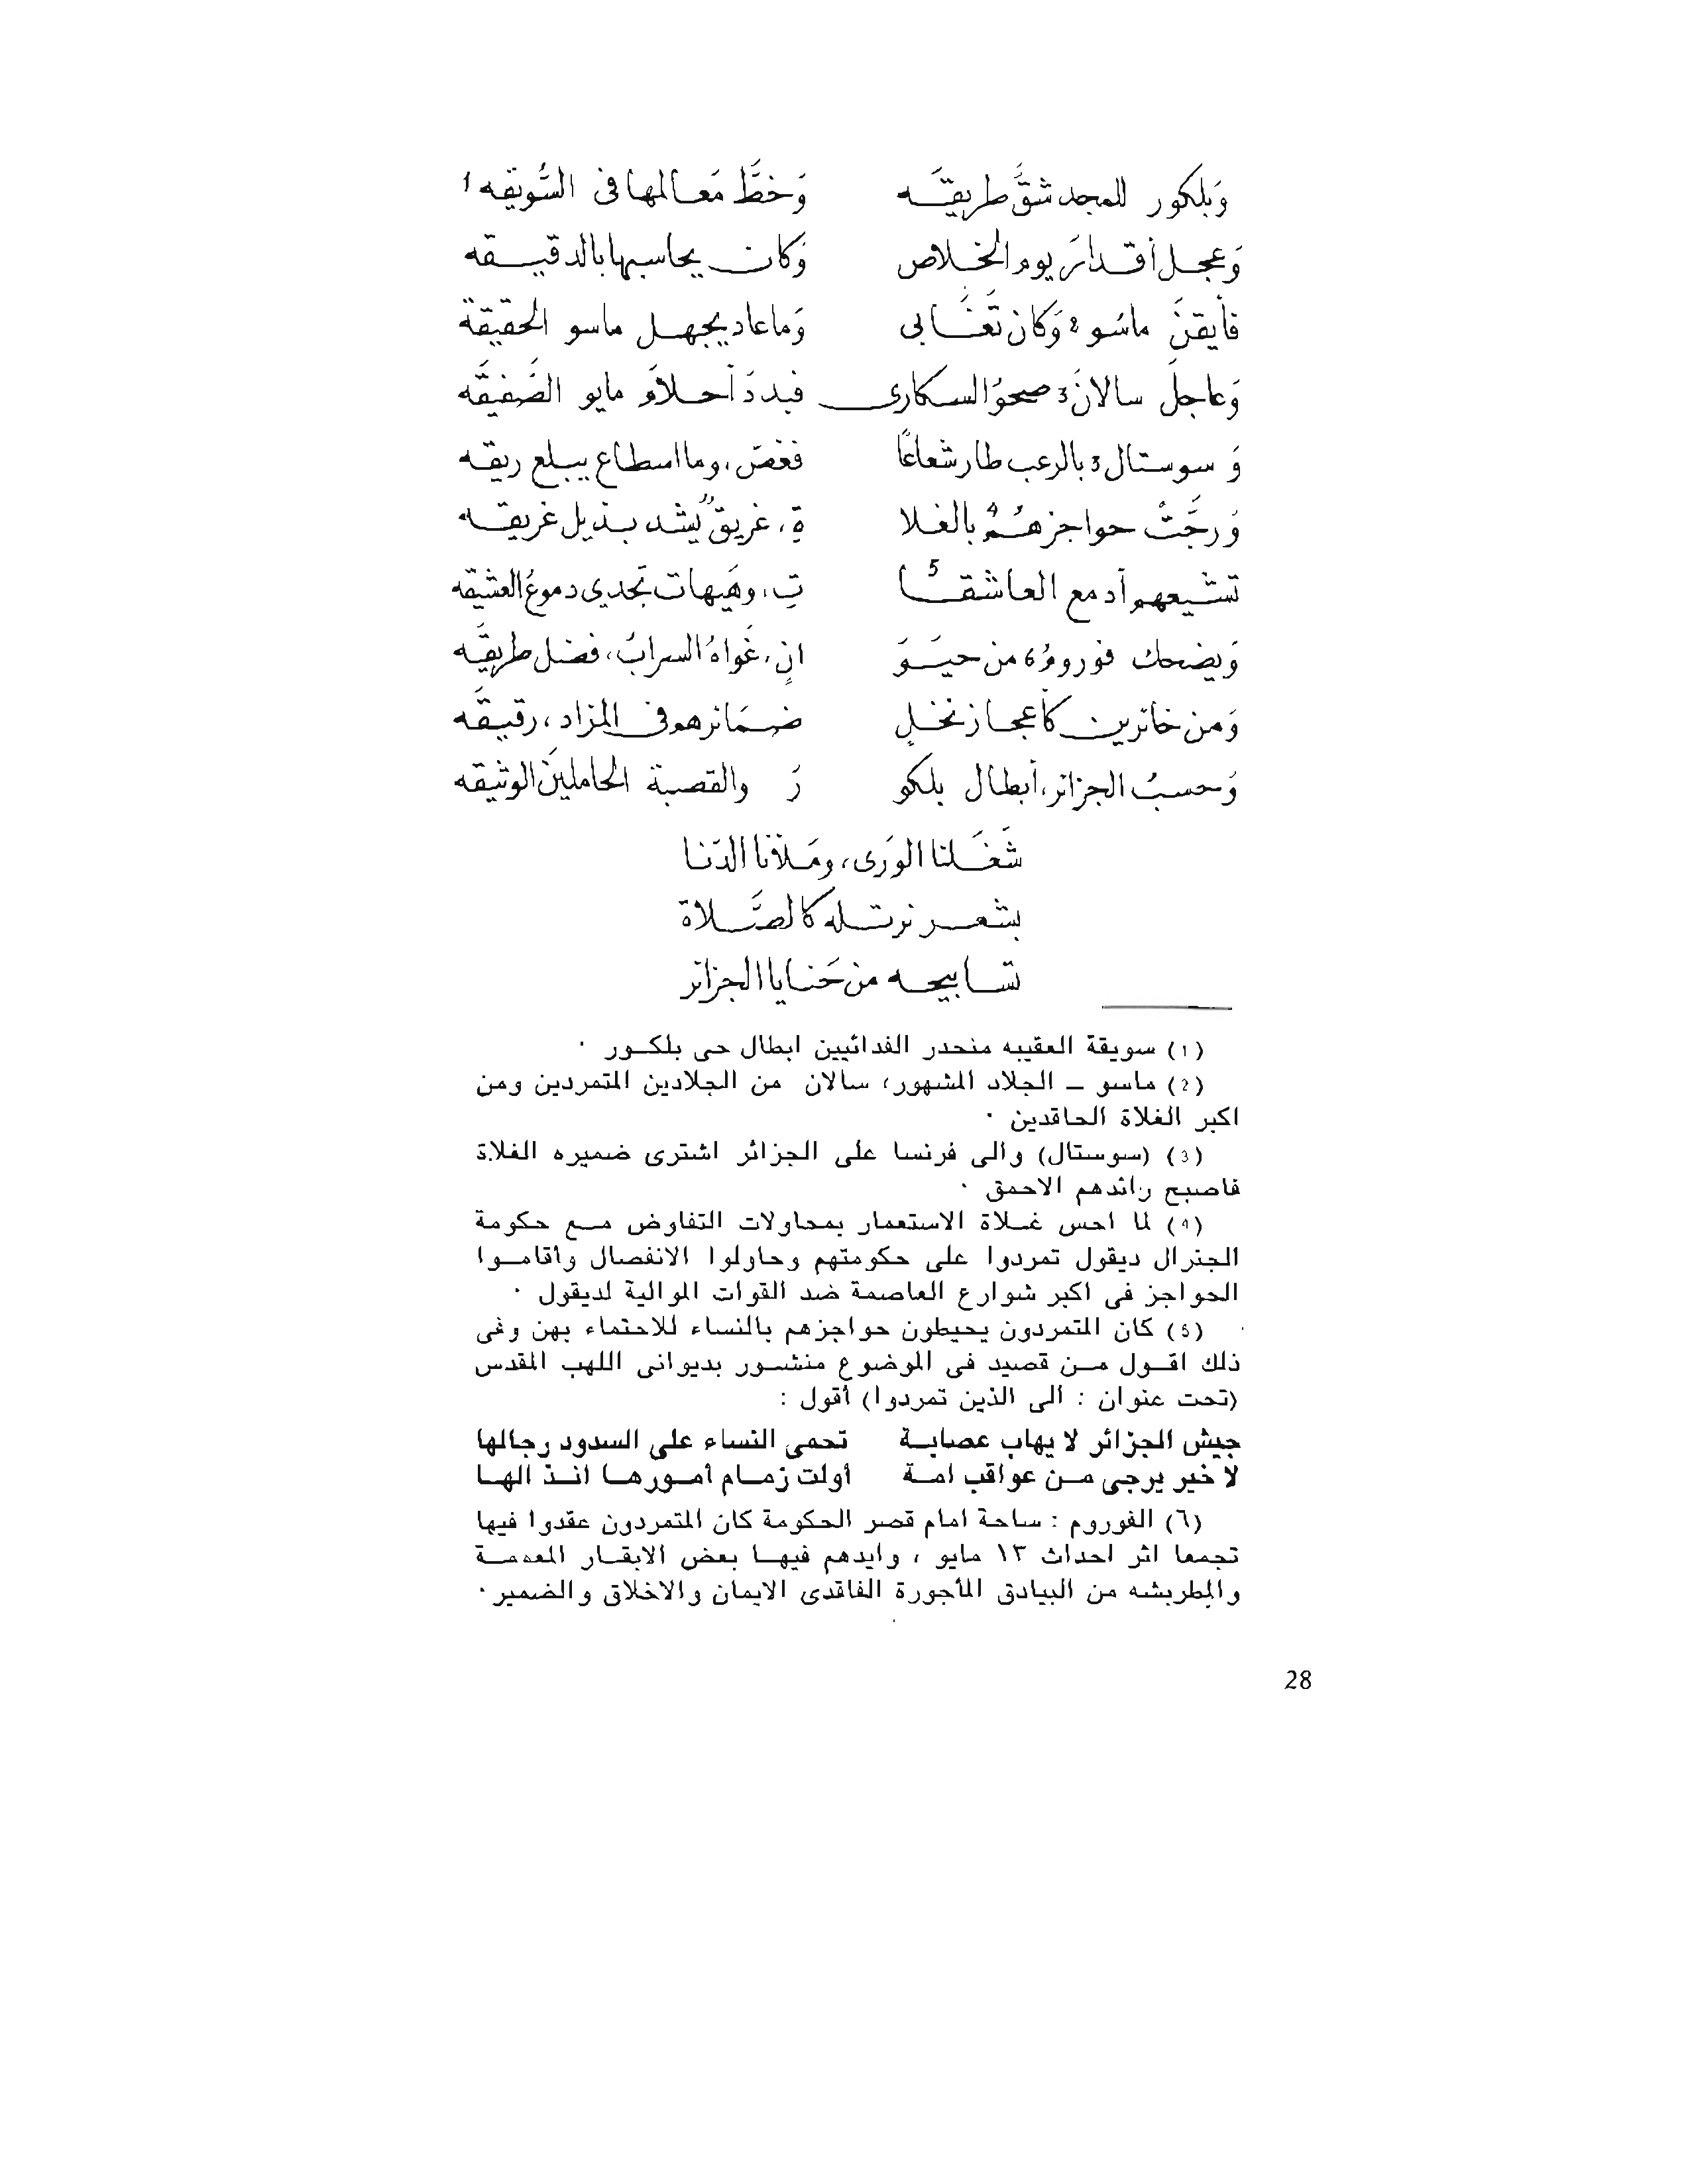 وَبلكور للمجد شقَّ طريقَه وَخطَّ مَعالمها فى السُّويقه 1
وَعجل أقدارَ يوم الخلاص وَكان يحاسبها بالدقيقه
فأيقنَ ماسُو 2 وَكان تَغَابى وَما عاد يجهل ماسو الحقيقة
وَعاجلَ سالانَ 3 صحوُ السكارى فبددَ أحلامَ مايو الصَفيقَه
وَ سوستال 3 بالرعب طار شعاعًا فغصّ، وما اسطاع يبلع ريقه
وَرجَّتْ حواجزهُمْ 4 بالغلا ةِ، غريقٌ يشد بذيل غريقه
تشيعهم أدمع العاشقا 5 تِ، وهَيهات تجدي دموعُ العشيقه
وَيضحك فورومُ 6 من حيَوَ انٍ، غَواهُ السرابُ، فضل طريقَه
وَمن خائرين كأعجاز نخلٍ ضمَائرهم فى المزاد، رقيقَه
وَحسبُ الجزائر، أبطال بلكو رَ والقصبة الحاملينَ الوثيقه
شَغَلنا الورَى، ومَلأنا الدّنا
بشعر نرتله كالصَّلاة
تسابيحه من حَنايا الجزائر
(١) سويقة العقيبه منحدر الفدائيين ابطال حى بلكور ٠
(2) ماسو – الجلاد المشهور، سالان من الجلادين المتمردين ومن
اكبر الغلاة الحاقدين ٠
(3) (سوستال) والى فرنسا على الجزائر اشترى ضميره الغلاة
فاصبح رائدهم الاحمق ٠
(4) لما احس غلاة الاستعمار بمحاولات التفاوض مع حكومة
الجنرال ديقول تمردوا على حكومتهم وحاولوا الانفصال وأقاموا
الحواجز فى اكبر شوارع العاصمة ضد القوات الموالية لديقول ٠
(5) كان المتمردون يحيطون حواجزهم بالنساء للاحتماء بهن وفى
ذلك اقول من قصيد فى الموضوع منشور بديوانى اللهب المقدس
(تحت عنوان : الى الذين تمردوا) أقول :
جيش الجزائر لا يهاب عصابة تحمى النساء على السدود رجالها
لا خير يرجى من عواقب امة أولت زمام أمورها انذالها
(٦) الفوروم : ساحة امام قصر الحكومة كان المتمردون عقدوا فيها
تجمعا اثر احداث ١٣ مايو ، وايدهم فيها بعض الابقار المعممة
والمطربشه من البيادق المأجورة الفاقدى الايمان والاخلاق والضمير ٠
28